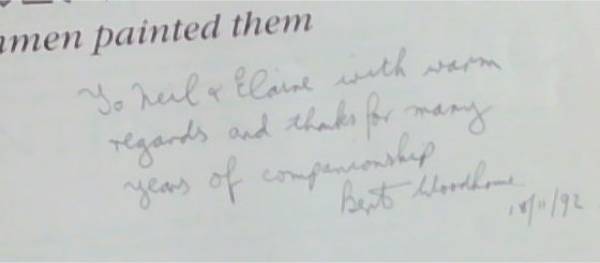 men painted them
To Neil & Elaine with warm
regards and thanks for many
years of companionship
Bert Woodhouse
18/11/92